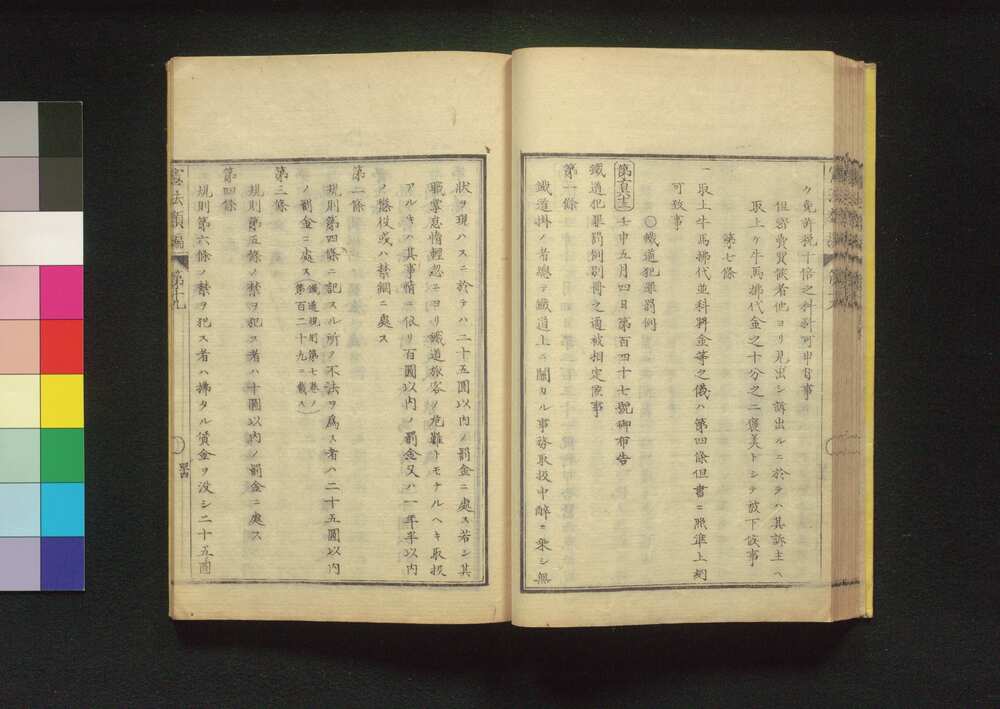 ク免許税十倍之科料可申付事
但密賣買候者他ヨリ見出シ訴出ルニ於テハ其訴主ヘ
取上ケ牛馬拂代金之十分之二褒美トシテ被下候事
第七條
一取上牛馬拂代並科料金等之儀ハ第四條但書ニ照準上納
可致事
〇鐵道犯罪罰例
第百八十三壬申五月四日第百四十七號御布告
鐵道犯罪罰例別冊之通被相定候事
第一條
鐵道掛ノ者總テ鐵道上ニ關カル事務取扱中醉ニ乘シ無
狀ヲ現ハスニ於テハ二十五圓以内ノ罰金ニ處ス若シ其
職掌怠惰輕忽ニヨリ鐵道旅客ノ危難トモナルヘキ取扱
アルキハ其事情ニ依リ百圓以内ノ罰金又ハ一年半以内
ノ懲役或ハ禁錮ニ處ス
第二條
規則第四條ニ記スル所ノ不法ヲ爲ス者ハ二十五圓以内
ノ罰金ニ處ス鐵道規則第七巻ノ
第百二十九ニ載ス
第三條
規則第五條ノ禁ヲ犯ス者ハ十圓以内ノ罰金ニ處ス
第四條
規則第六條ノ禁ヲ犯ス者ハ拂タル賃金ヲ没シ二十五圓
憲法類編
第十九